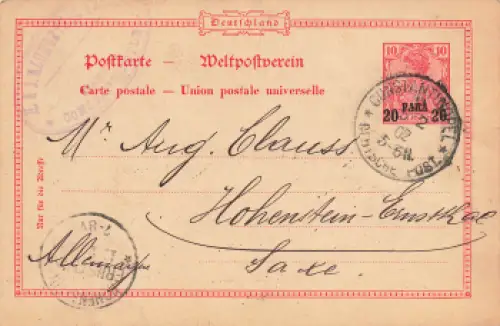 Deutschland
Postkarte – Weltpostverein
Carte postale – Union postale universelle
10 10
20 PARA 20
CONSTANTINOPEL
02
5-6N.
DEUTSCHE POST.
Mr Aug. Clauss
Hohenstein-Ernstthal
Allemagne
Saxe
Nur für die Adresse